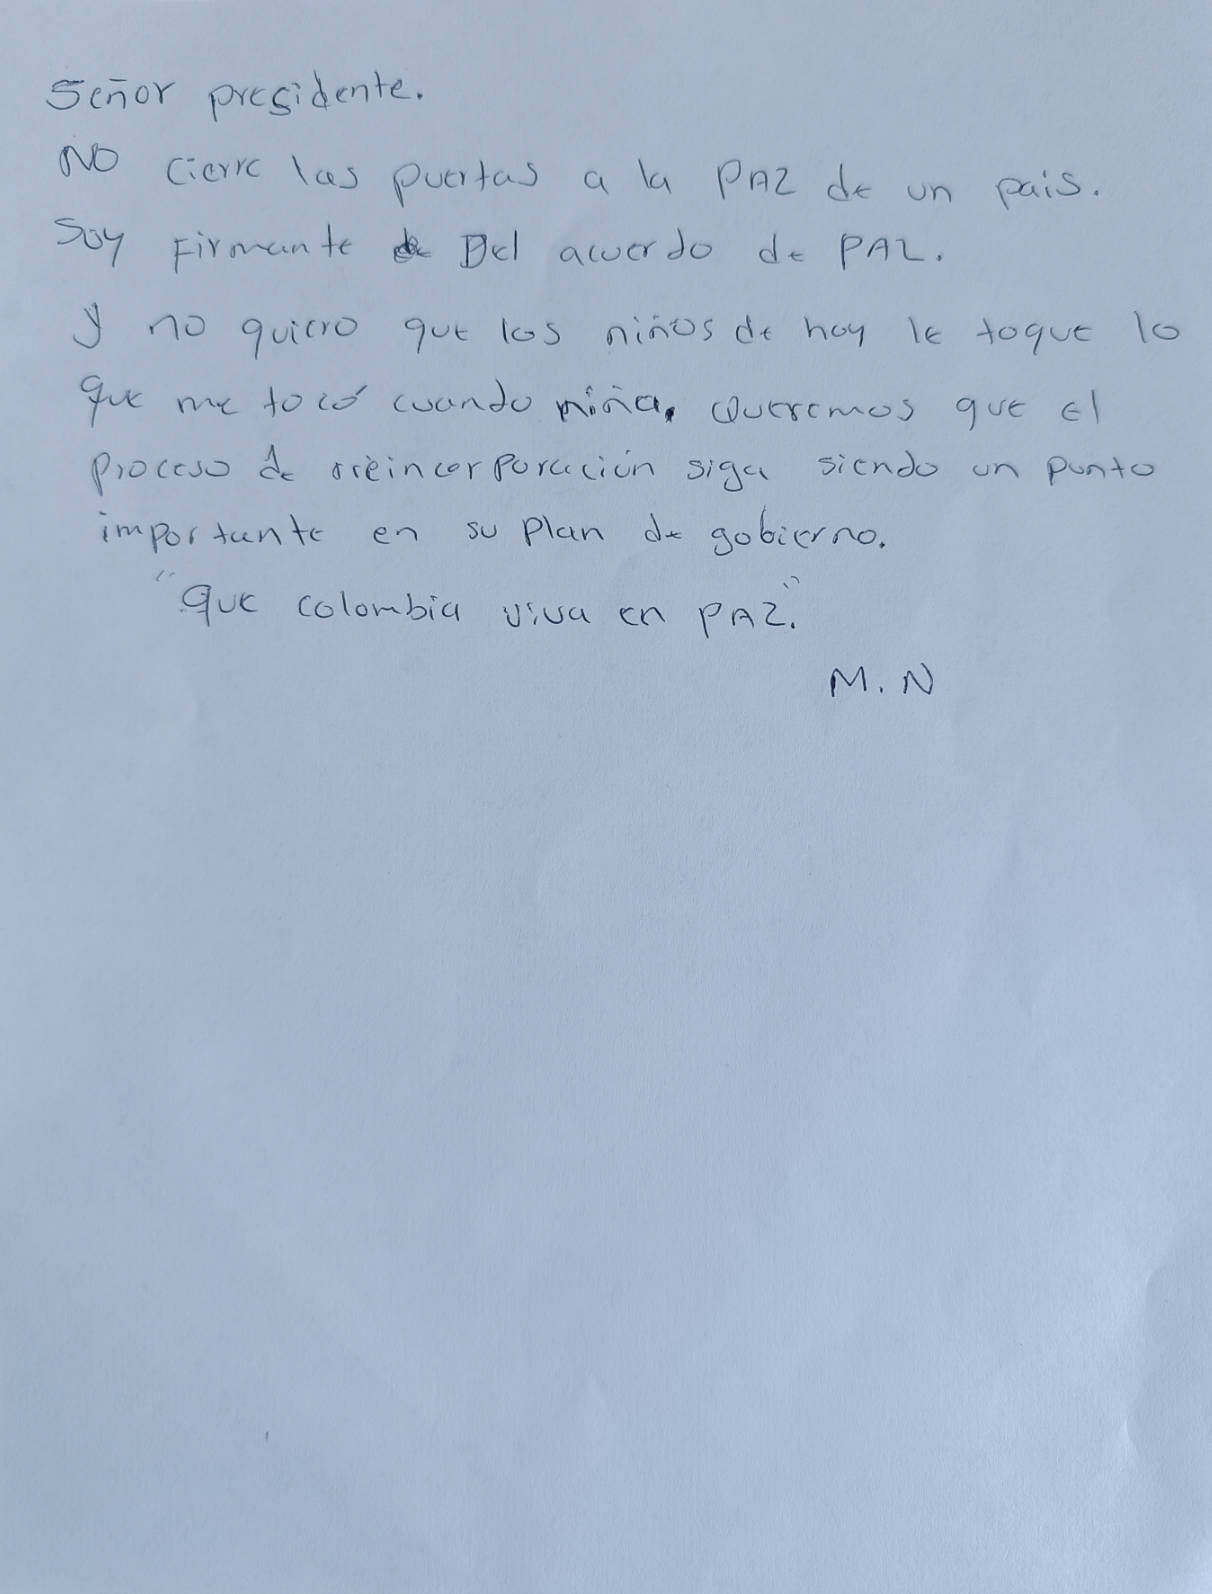 Señor presidente.
NO cierre las puertas a la PAZ de un pais.
Soy Firmante Del acuerdo de PAZ.
y no quiero que los niños de hoy le toque lo
que me tocó cuando niña. Queremos que el
proceso de reincorporación siga siendo un punto
importante en su plan de gobierno.
"que colombia viva en PAZ."
M.N